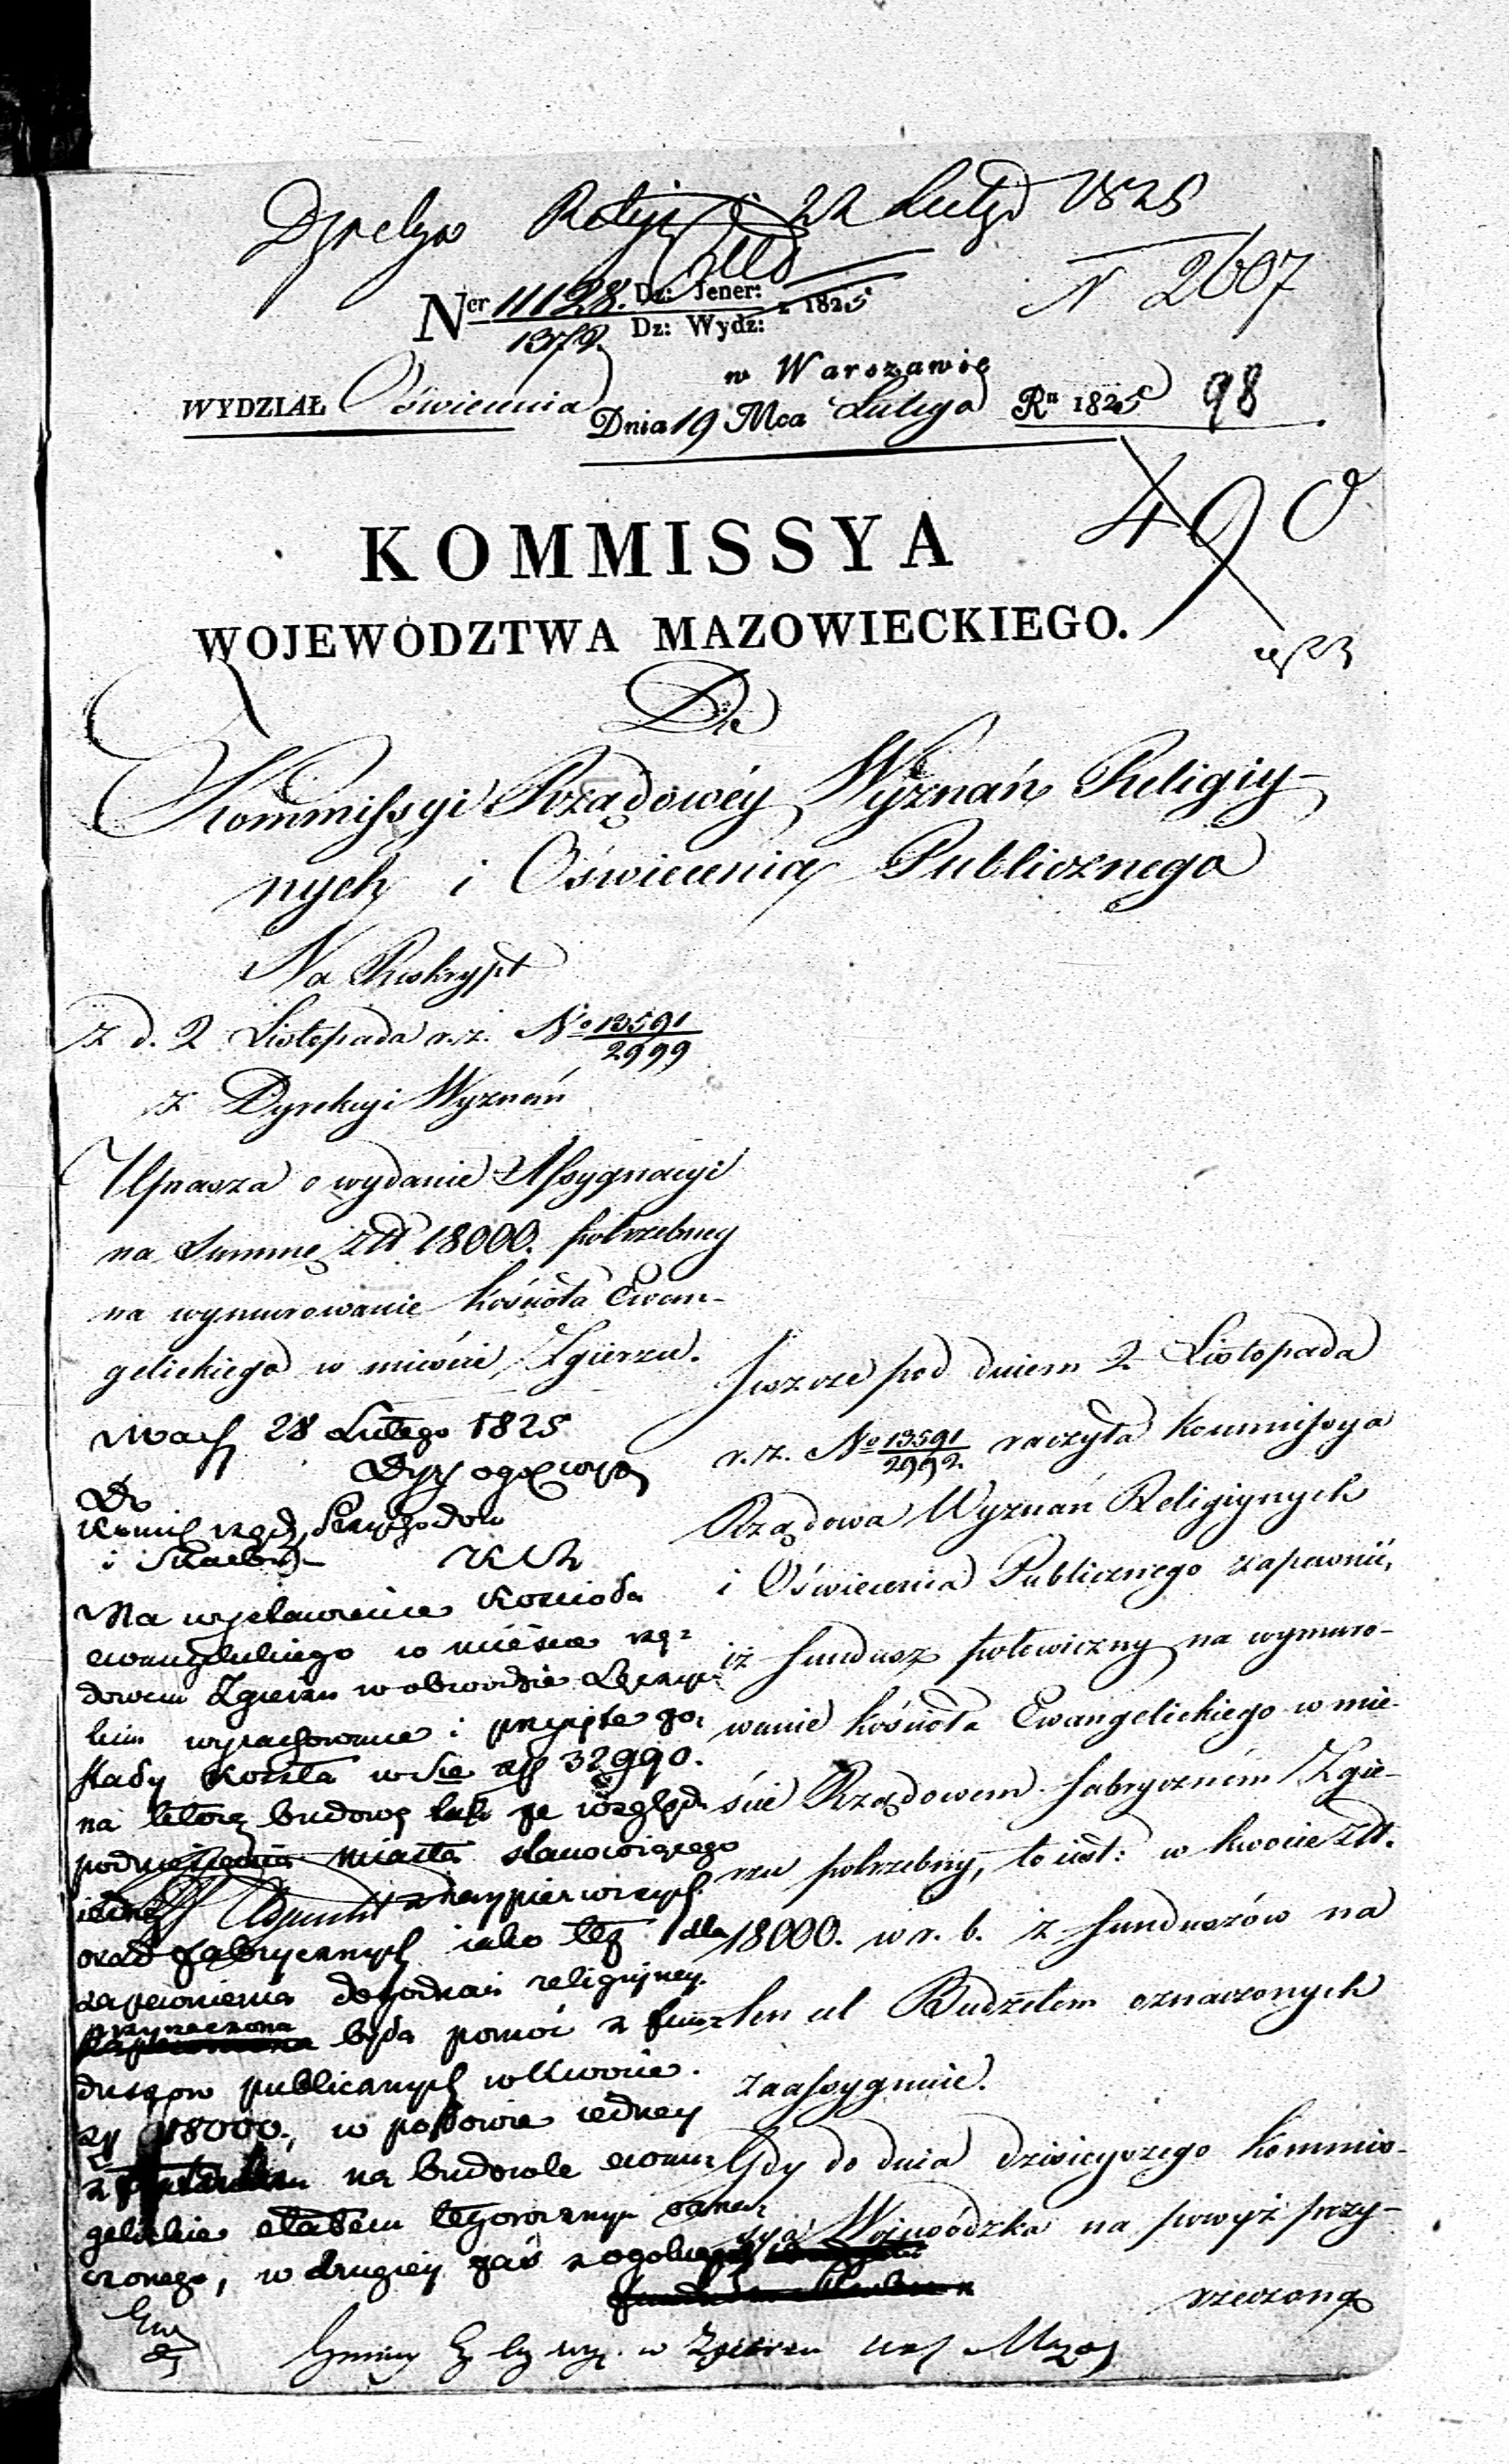 Dyrekcya Relig: 22 Lutego 1825
N 2607
Ner 11128. Dz: Jener: z 1825
1372. Dz: Wydz:
w Warszawie
WYDZIAŁ Oświecenia Dnia 19 Mca Lutego Ru 1825 98
490
KOMMISSYA
WOJEWÓDZTWA MAZOWIECKIEGO.
Do
Kommissyi Rządowéy Wyznań Religiy-
nych i Oświecenia Publicznego
Na Reskrypt
z d. 2 Listopada r. z. No 13591
2999
z Dyrekcyi Wyznań
Uprasza o wydanie Assygnacyi
na Summę złł 18000. potrzebney
na wymurowanie kościoła Ewan-
gelickiego w mieście Zgierzu.
28 Lutego 1825
Do
Przychodów
i Skarbu
Na wystawienie Kościoła
ewangelickiego w mieście rzą-
dowem Zgierzu w obwodzie Łęczyc-
kim wyrachowane i przyjęte zo-
stały koszta w Sie złł 32990.
na którą budowę tak ze względu
podniesienia miasta stanowiącego
iedną z naypierwszych
osad fabrycznych iako też dla
zapewnienia dogodnośi religijney
przyznaczona była pomoc z fun-
duszow publicznych w kwocie
zł 18000., w połowie iedney
z na budowle ewan-
gelickie etatem tegorocznym ozna-
czonego, w drugiey zaś z ogolnego
Jeszcze pod dniem 2 Listopada
r. z. No 13591 raczyła Kommissya
2992.
Rządowa Wyznań Religiynych
i Oświecenia Publicznego zapewnić,
iż fundusz połowiczny na wymuro-
wanie kościoła Ewangelickiego w mie-
ście Rządowem fabryczném Zgie-
rzu potrzebny, to iest: w kwocie złł.
18000. w r. b. z funduszów na
ten cel Budżetem oznaczonych
zaassygnuie.
Gdy do dnia dzisieyszego Kommis-
sya Woiewódzka na powyż przy-
rzeczoną
Gminy w Zgierzu